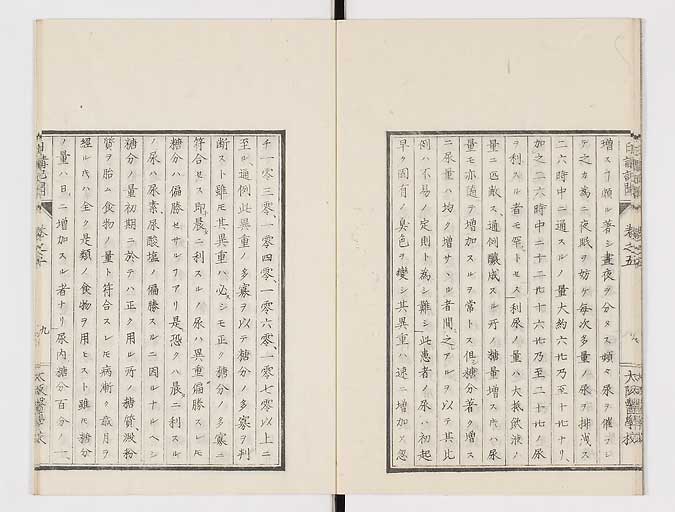 増スヿ頗ル著シ晝夜ヲ分タス頻々尿ヲ催フシ
テ之カ為ニ夜眠ヲ妨ケ毎次多量ノ尿ヲ排洩ス
二六時中ニ通スルノ量大約六㪷乃至十㪷ナリ
加之二六時中ニ十二㪷十六㪷乃至二十㪷ノ尿
ヲ利スル者モ罕トセス利尿ノ量ハ大抵飲液ノ
量ニ匹敵ス通例釀成スル所ノ糖量増スキハ尿
量モ亦随テ増加スルヲ常トス但シ糖分著ク増ス
ニ尿量ハ均ク増サヽル者間之アルヲ以テ其比
例ハ不易ノ定則ト為シ難シ此患者ノ尿ハ初起
早ク固有ノ臭色ヲ變シ其異重ハ速ニ増加ス忽
チ一零三零一零四零一零六零一零七零以上ニ
至ル通例此異重ノ多寡ヲ以テ糖分ノ多寡ヲ判
断スト雖モ其異重ハ必シモ正ク糖分ノ多寡ニ
符合セス即晨ニ利スルノ尿ハ異重偏勝スレ𪜈
糖分ハ偏勝セサルヿアリ是恐クハ晨ニ利スル
ノ尿ハ尿素尿酸塩ノ偏勝スルニ因ルナルヘシ
糖分ノ量初期ニ於テハ正ク用ル所ノ糖質澱粉
質ヲ胎ム食物ノ量ト符合スレ𪜈病漸ク歳月ヲ
經ルキハ全ク是類ノ食物ヲ用ヒスト雖𪜈糖分
ノ量ハ日ニ増加スル者ナリ尿内糖分百分ノ一
日講記聞
巻之五
大阪醫學校
九